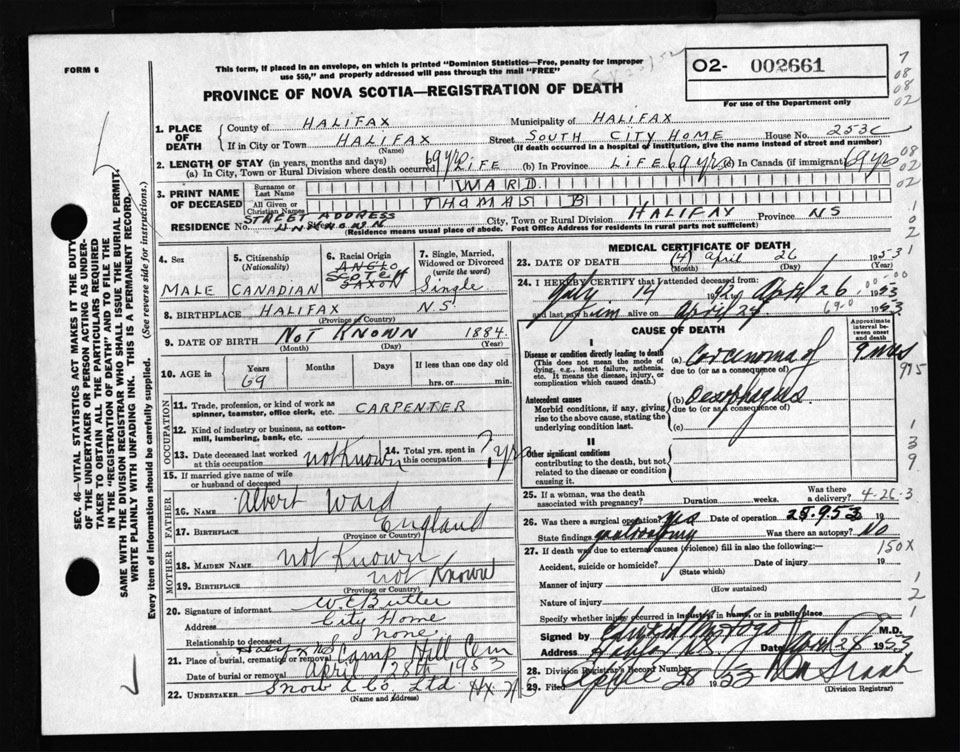 FORM 6
This form, if placed in an envelope, on which is printed "Dominion Statistics—Free, penalty for improper
use $50," and properly addressed will pass through the mail "FREE"
02- 002661
For use of the Department only
PROVINCE OF NOVA SCOTIA—REGISTRATION OF DEATH
7
08
08
02
1. PLACE OF DEATH
County of HALIFAX Municipality of HALIFAX
If in City or Town HALIFAX Street SOUTH CITY HOME House No.
(Name) (If death occurred in a hospital of institution, give the name instead of street and number)
2. LENGTH OF STAY (in years, months and days)
(a) In City, Town or Rural Division where death occurred 69 yrs LIFE (b) In Province LIFE 69 yrs (c) In Canada (if immigrant) 69 yrs
08
02
02
3. PRINT NAME OF DECEASED
Surname or Last Name WARD
All Given or Christian Names THOMAS B
RESIDENCE No. STREET ADDRESS UNKNOWN City, Town or Rural Division HALIFAX Province NS
(Residence means usual place of abode. Post Office Address for residents in rural parts not sufficient)
4. Sex MALE
5. Citizenship (Nationality) CANADIAN
6. Racial Origin ANGLO SCOTCH SAXON
7. Single, Married, Widowed or Divorced (write the word) Single
8. BIRTHPLACE HALIFAX NS
(Province or Country)
9. DATE OF BIRTH NOT KNOWN 1884
(Month) (Day) (Year)
10. AGE in Years 69 Months Days If less than one day
hrs. or min.
OCCUPATION
11. Trade, profession, or kind of work as
spinner, teamster, office clerk, etc. CARPENTER
12. Kind of industry or business, as cotton-
mill, lumbering, bank, etc.
13. Date deceased last worked at this occupation not known
14. Total yrs. spent in this occupation ? yrs
15. If married give name of wife
or husband of deceased
FATHER
16. NAME Albert Ward
17. BIRTHPLACE England
(Province or Country)
MOTHER
18. MAIDEN NAME not Known
19. BIRTHPLACE not Known
(Province or Country)
20. Signature of informant W. E. Butler
Address City Home
Relationship to deceased none
21. Place of burial, cremation or removal Halifax NS Camp Hill Cem
Date of burial or removal April 28th 1953
22. UNDERTAKER Snow & Co. Ltd. Hx NS
(Name and Address)
MEDICAL CERTIFICATE OF DEATH
23. DATE OF DEATH (4) April 26 1953
(Month) (Day) (Year)
24. I HEREBY CERTIFY that I attended deceased from:
July 14 April 26 1953
and last saw him alive on April 1953
CAUSE OF DEATH
Approximate interval between onset and death
I
Disease or condition directly leading to death
(This does not mean the mode of
dying, e.g., heart failure, asthenia,
etc. It means the disease, injury, or
complication which caused death.)
(a) Carcinoma of
due to (or as a consequence of)
Antecedent causes
Morbid conditions, if any, giving
rise to the above cause, stating the
underlying condition last.
(b) Oesophagus
due to (or as a consequence of)
(c)
II
Other significant conditions
contributing to the death, but not
related to the disease or condition
causing it.
25. If a woman, was the death
associated with pregnancy? Duration weeks. Was there a delivery? 4-26-3
26. Was there a surgical operation? Yes Date of operation
State findings Was there an autopsy? No
27. If death was due to external causes (violence) fill in also the following:—
150X
Accident, suicide or homicide? Date of injury 19
(State which)
Manner of injury
(How sustained)
Nature of injury
Specify whether injury occurred in industry, in home, or in public place
Signed by M.D.
Address Halifax N.S. Date 28 1953
28. Division Registrar's Record Number
29. Filed April 28 1953
(Division Registrar)
SEC. 46—VITAL STATISTICS ACT MAKES IT THE DUTY
OF THE UNDERTAKER OR PERSON ACTING AS UNDER-
TAKER TO OBTAIN ALL THE PARTICULARS REQUIRED
IN THE "REGISTRATION OF DEATH" AND TO FILE THE
SAME WITH THE DIVISION REGISTRAR WHO SHALL ISSUE THE BURIAL PERMIT.
WRITE PLAINLY WITH UNFADING INK. THIS IS A PERMANENT RECORD.
Every item of information should be carefully supplied. (See reverse side for instructions.)